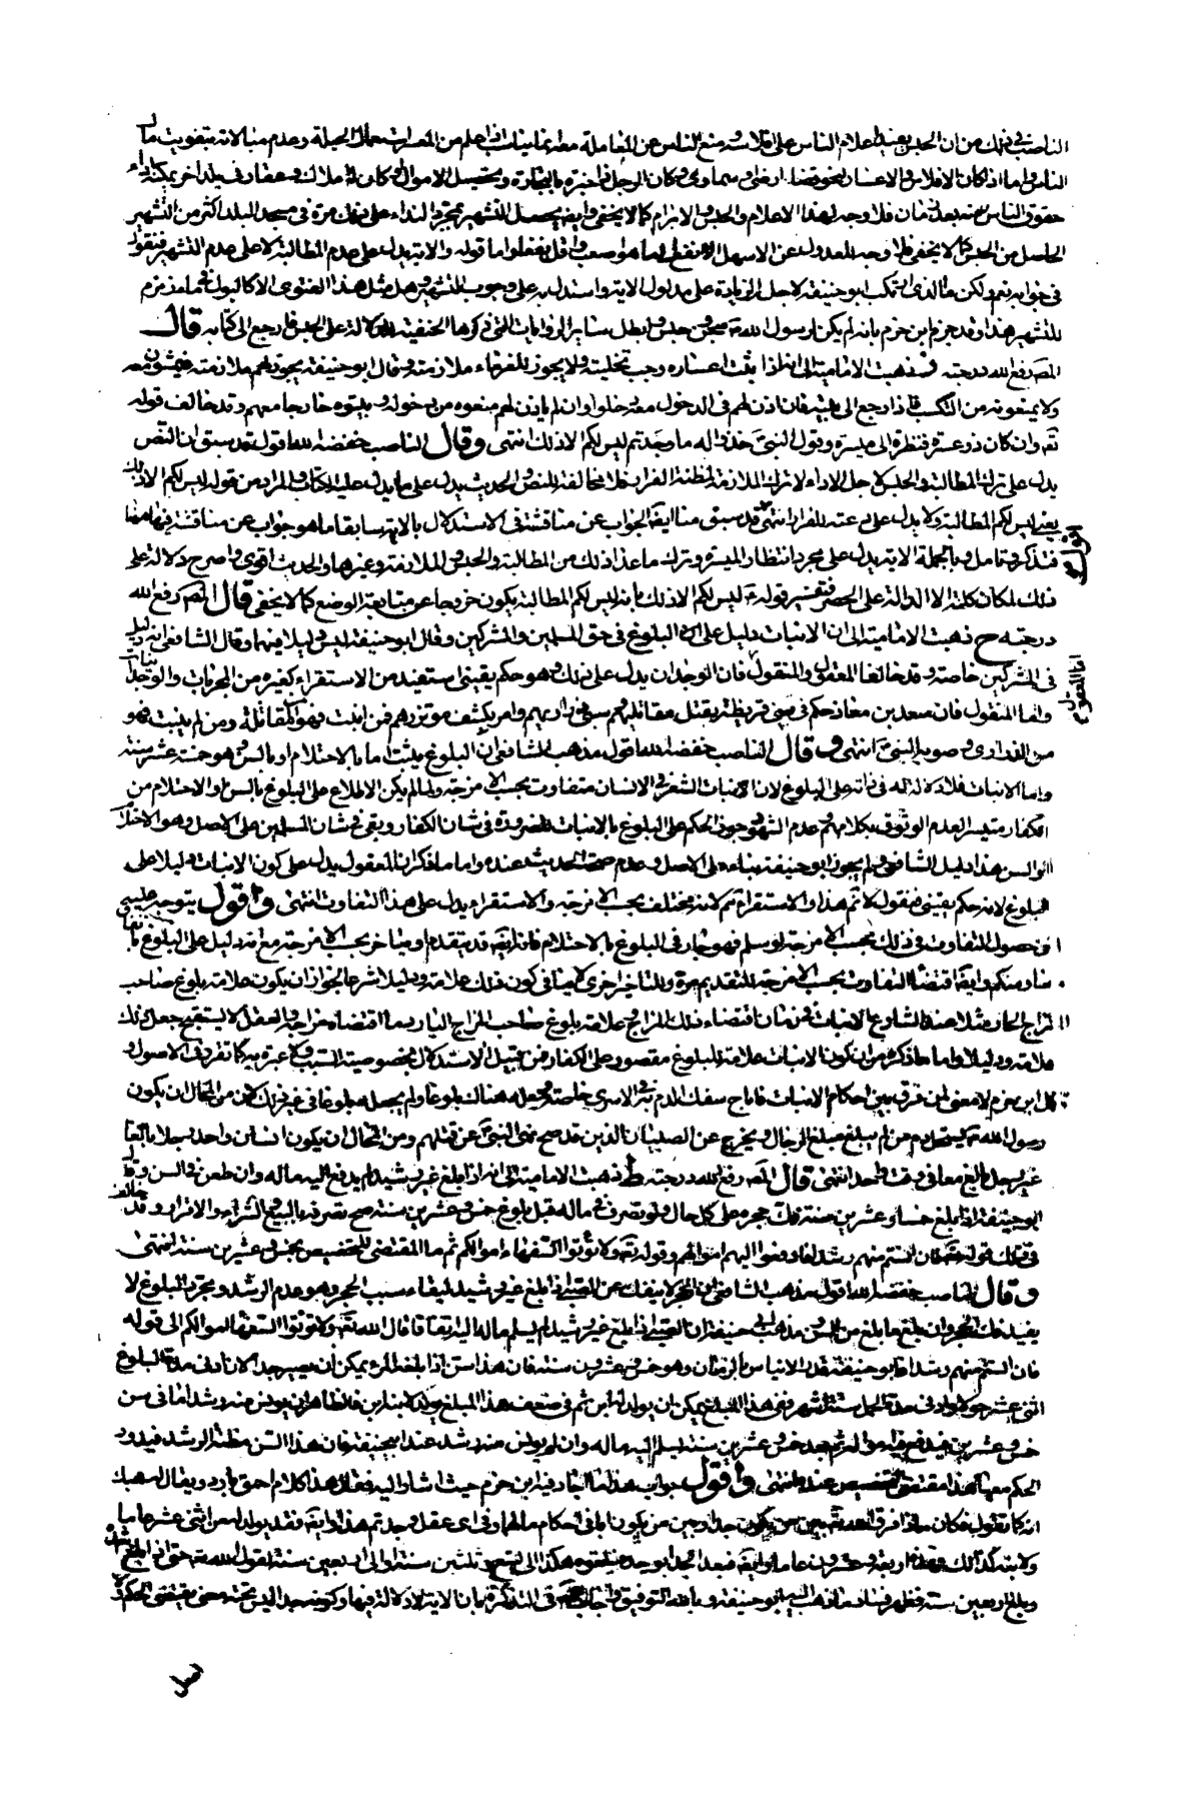 الناصب في ذلك من ان الحبس يفيد اعلام الناس على افلاسه ومنع الناس عن المعاملة معه انما يناسب اذا علم من المعسر استعمال الحيلة وعدم مبالاته بتفويت مال
الناس واما اذا كان الافلاس والاعسار بنحو قضاء ارضي او سماوي وكان الرجل ذا خبرة بالتجارة وتحصيل الاموال او كان له املاك وعقار في بلد اخر يمكنه اداء
حقوق الناس منه بعد زمان فلا وجه لهذا الاعلام والحبس والابرام كما لا يخفى وايضا يحصل التشهير بمجرد النداء على ذلك مرة في مسجد البلد اكثر من التشهير
الحاصل من الحبس كما لا يخفى فلا وجه للعدول عن الاسهل الانفع الى ما هو اصعب واقل نفعا واما قوله والاية يدل على عدم المطالبة لا على عدم التشهير فنقول
في جوابه نعم ولكن ما الذي ارتكب ابو حنيفة لاجل الزيادة على مدلول الاية واستدل به على وجوب التشهير وهل مثل هذا الفتوى الا كالبول في ماء زمزم
للتشهير هذا وقد جزم ابن حزم بانه لم يكن لرسول الله ص سجن وحبس وابطل سائر الروايات التي ذكرها الحنفية للدلالة على الحبس فارجع الى كتابه قال
المص رفع الله درجته و ذهبت الامامية الى انه اذا ثبت اعساره وجب تخليته ولا يجوز للغرماء ملازمته وقال ابو حنيفة يجوز لهم ملازمته فيمشون معه
ولا يمنعونه من التكسب فاذا رجع الى بيته فان اذن لهم في الدخول معه دخلوا وان لم ياذن لهم منعوه من دخوله وبيتوه خارجا معهم وقد خالف قوله
تعه وان كان ذو عسرة فنظرة الى ميسرة وقول النبي ص خذوا له ما وجدتم ليس لكم الا ذلك انتهى وقال الناصب خفضه الله اقول قد سبق ان النص
يدل على ترك المطالبة والحبس لاجل الاداء لا ترك الملازمة لمظنة الفرار فلا مخالفة للنص والحديث يدل على ما يدل عليه الكتاب والمراد من قوله ليس لكم الا ذلك
يعني ليس لكم المطالبة ولا يدل على منعته للفرار انتهى قد سبق منا ايضا الجواب عن مناقشته في الاستدلال بالاية سابقا ما هو جواب عن مناقشة فيها ههنا
اقول
فتذكر وتامل وبالجملة الاية يدل على مجرد انتظار الميسرة وترك ما عدا ذلك من المطالبة والحبس والملازمة وغيرها والحديث اقوى واصرح دلالة على
ذلك لمكان كلمة الا الدالة على الحصر فتفسير قوله ص ليس لكم الا ذلك بانه ليس لكم المطالبة يكون خروجا عن متابعة الوضع كما لا يخفى قال المص رفع الله
درجته ح ذهبت الامامية الى ان الانبات دليل على البلوغ في حق المسلمين والمشركين وقال ابو حنيفة ليس دليلا فيهما وقال الشافعي انه دليل
في المشركين خاصة وقد خالفا المعقول والمنقول فان الوجدان يدل على ذلك وهو حكم يقيني استفيد من الاستقراء كغيره من المجربات والوجدانيات
اما المعقول
واما المنقول فان سعد بن معاذ حكم في بني قريظة بقتل مقاتليهم وسبي ذراريهم وامر بكشف مؤتزرهم فمن انبت فهو من المقاتلة ومن لم ينبت فهو
من الذراري وصوبه النبي ص انتهى وقال الناصب خفضه الله اقول مذهب الشافعي ان البلوغ يثبت اما بالاحتلام او بالسن وهو خمسة عشر سنة
واما الانبات فلا دلالة له في ذاته على البلوغ لان انبات الشعر في الانسان متفاوت بحسب الامزجة ولما لم يكن الاطلاع على البلوغ بالسن او الاحتلام من
الكفار متيسرا لعدم الوثوق بكلامهم وعدم الشهود جوز الحكم على البلوغ بالانبات للضرورة في شان الكفار وبقي في شان المسلمين على الاصل وهو الاحتلام
او السن هذا دليل الشافعي ولم يجوز ابو حنيفة بناء على الاصل وعدم صحة الحديث عنده واما ما ذكر ان المعقول يدل على كون الانبات دليلا على
البلوغ لانه حكم يقيني فنقول لا تم هذا والاستقراء ثم لانه يختلف بحسب الامزجة والاستقراء يدل على هذا التفاوت انتهى واقول يتوجه عليه
ان حصول التفاوت في ذلك بحسب الامزجة لو سلم فهو جار في البلوغ بالاحتلام فانه ايضا قد يتقدم او يتاخر بحسب الامزجة مع انه دليل على البلوغ
منكم وايضا اقتضاء التفاوت بحسب الامزجة للتقديم مرة وللتاخير اخرى لا ينافي كون ذلك علامة ودليلا شرعا لجواز ان يكون علامة بلوغ صاحب
المزاج الحار مثلا عند الشارع الانبات في زمان اقتضاء ذلك المزاج وعلامة بلوغ صاحب المزاج البارد ما اقتضاه مزاجه والعقل لا يستقبح جعل ذلك
علامة ودليلا واما ما ذكره من ان كون الانبات علامة للبلوغ مقصور على الكفار فمن قبيل الاستدلال بخصوصية السبب ولا عبرة به كما تقرر في الاصول
قال ابن حزم لا معنى لمن فرق بين احكام الانبات فاباح سفك الدم به في الاسرى خاصة وجعله هناك بلوغا ولم يجعله بلوغا في غير ذلك لان من المحال ان يكون
رسول الله ص يستحل دم من لم يبلغ مبلغ الرجال ويخرج عن الصبيان الذين قد صح نهى النبي ص عن قتلهم ومن المحال ان يكون انسان واحد رجلا بالغا
غير رجل ولا بالغ معا في وقت واحد انتهى قال المص رفع الله درجته ط ذهبت الامامية الى انه اذا بلغ غير رشيد لم يدفع اليه ماله وان طعن في السن وقال
ابو حنيفة اذا بلغ خمسا وعشرين سنة فك حجره على كل حال ولو تصرف في ماله قبل بلوغ خمس وعشرين سنة صح تصرفه بالبيع والشراء والاقرار وقد خالف
في ذلك قوله تعه فان انستم منهم رشدا فادفعوا اليهم اموالهم وقوله تعه ولا تؤتوا السفهاء اموالكم ثم ما المقتضي للتخصيص بخمس وعشرين سنة انتهى
وقال الناصب خفضه الله اقول مذهب الشافعي ان الحجر لا ينفك عن الصبي اذا بلغ غير رشيد لبقاء سبب الحجر وهو عدم الرشد ومجرد البلوغ لا
يفيد فك الحجر وان بلغ ما بلغ من السن ومذهب ابي حنيفة ان الصبي اذا بلغ غير رشيد لم يسلم ماله اليه اتفاقا قال الله تعه ولا تؤتوا السفهاء اموالكم الى قوله
فان انستم منهم رشدا فابو حنيفة قدر الايناس بالزمان وهو خمس وعشرون سنة فان هذا سن اذا بلغه المرء يمكن ان يصير جدا لان ادنى مدة البلوغ
اثنى عشر حولا وادنى مدة الحمل ستة اشهر ففي هذا المبلغ يمكن ان يولد له ابن ثم في ضعف هذا المبلغ يولد لابنه ابن فالظاهر ان يونس منه رشد اما في سن
خمس وعشرين فيدفع فيه امواله ثم بعد خمس وعشرين سنة يسلم اليه ماله وان لم يونس منه رشد عند ابي حنيفة فان هذا السن مظنة الرشد فيدور
الحكم معها هذا مقتضى التخصيص عنده انتهى واقول جواب هذا ما افاد فيه ابن حزم حيث اشار اليه فقال هذا كلام احمق بارد ويقال له هبك
انه كما تقول فكان ماذا فرق الله بين من يكون جدا وبين من يكون ابا في احكام مالهما وفي اي عقل وجدتم هذا وايضا فقد يولد له من اثني عشر عاما
ولابنه كذلك فهذه اربعة وعشرون عاما وايضا فبعد الجد ابو جد فبلغوه هكذا الى تسع وثلثين سنة او الى اربعين سنة لقول الله تعه حتى اذا بلغ اشده
وبلغ اربعين سنة فظهر فساد ما ذهب اليه ابو حنيفة وبالله التوفيق واجاب في التذكرة بان الاية لا دلالة فيها وكونه جدا ليس تحته معنى يقتضي الحكم